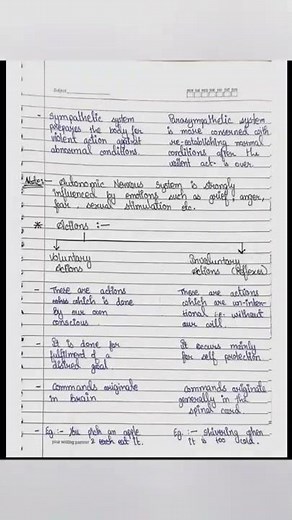 Subject
- Sympathetic system
prepares the body for
violent action against
abnormal conditions.
Parasympathetic system
is more concerned with
re-establishing normal
conditions after the
violent act is over.
Note:- Autonomic Nervous System is strongly
influenced by emotions such as grief, anger,
fear, sexual stimulation etc.
* Actions :-
Voluntary
Actions
Involuntary
Actions (Reflexes)
- These are actions
which is done
by our own
conscious.
These are actions
which are un-inten-
tional i.e. without
our will.
- It is done for
fulfilment of a
desired goal.
It occurs mainly
for self protection
- Commands originate
in brain
Commands originate
generally in the
spinal cord.
- Eg :- You pick an apple
& eat it.
Eg. :- shivering when
it is too cold.
your writing partner